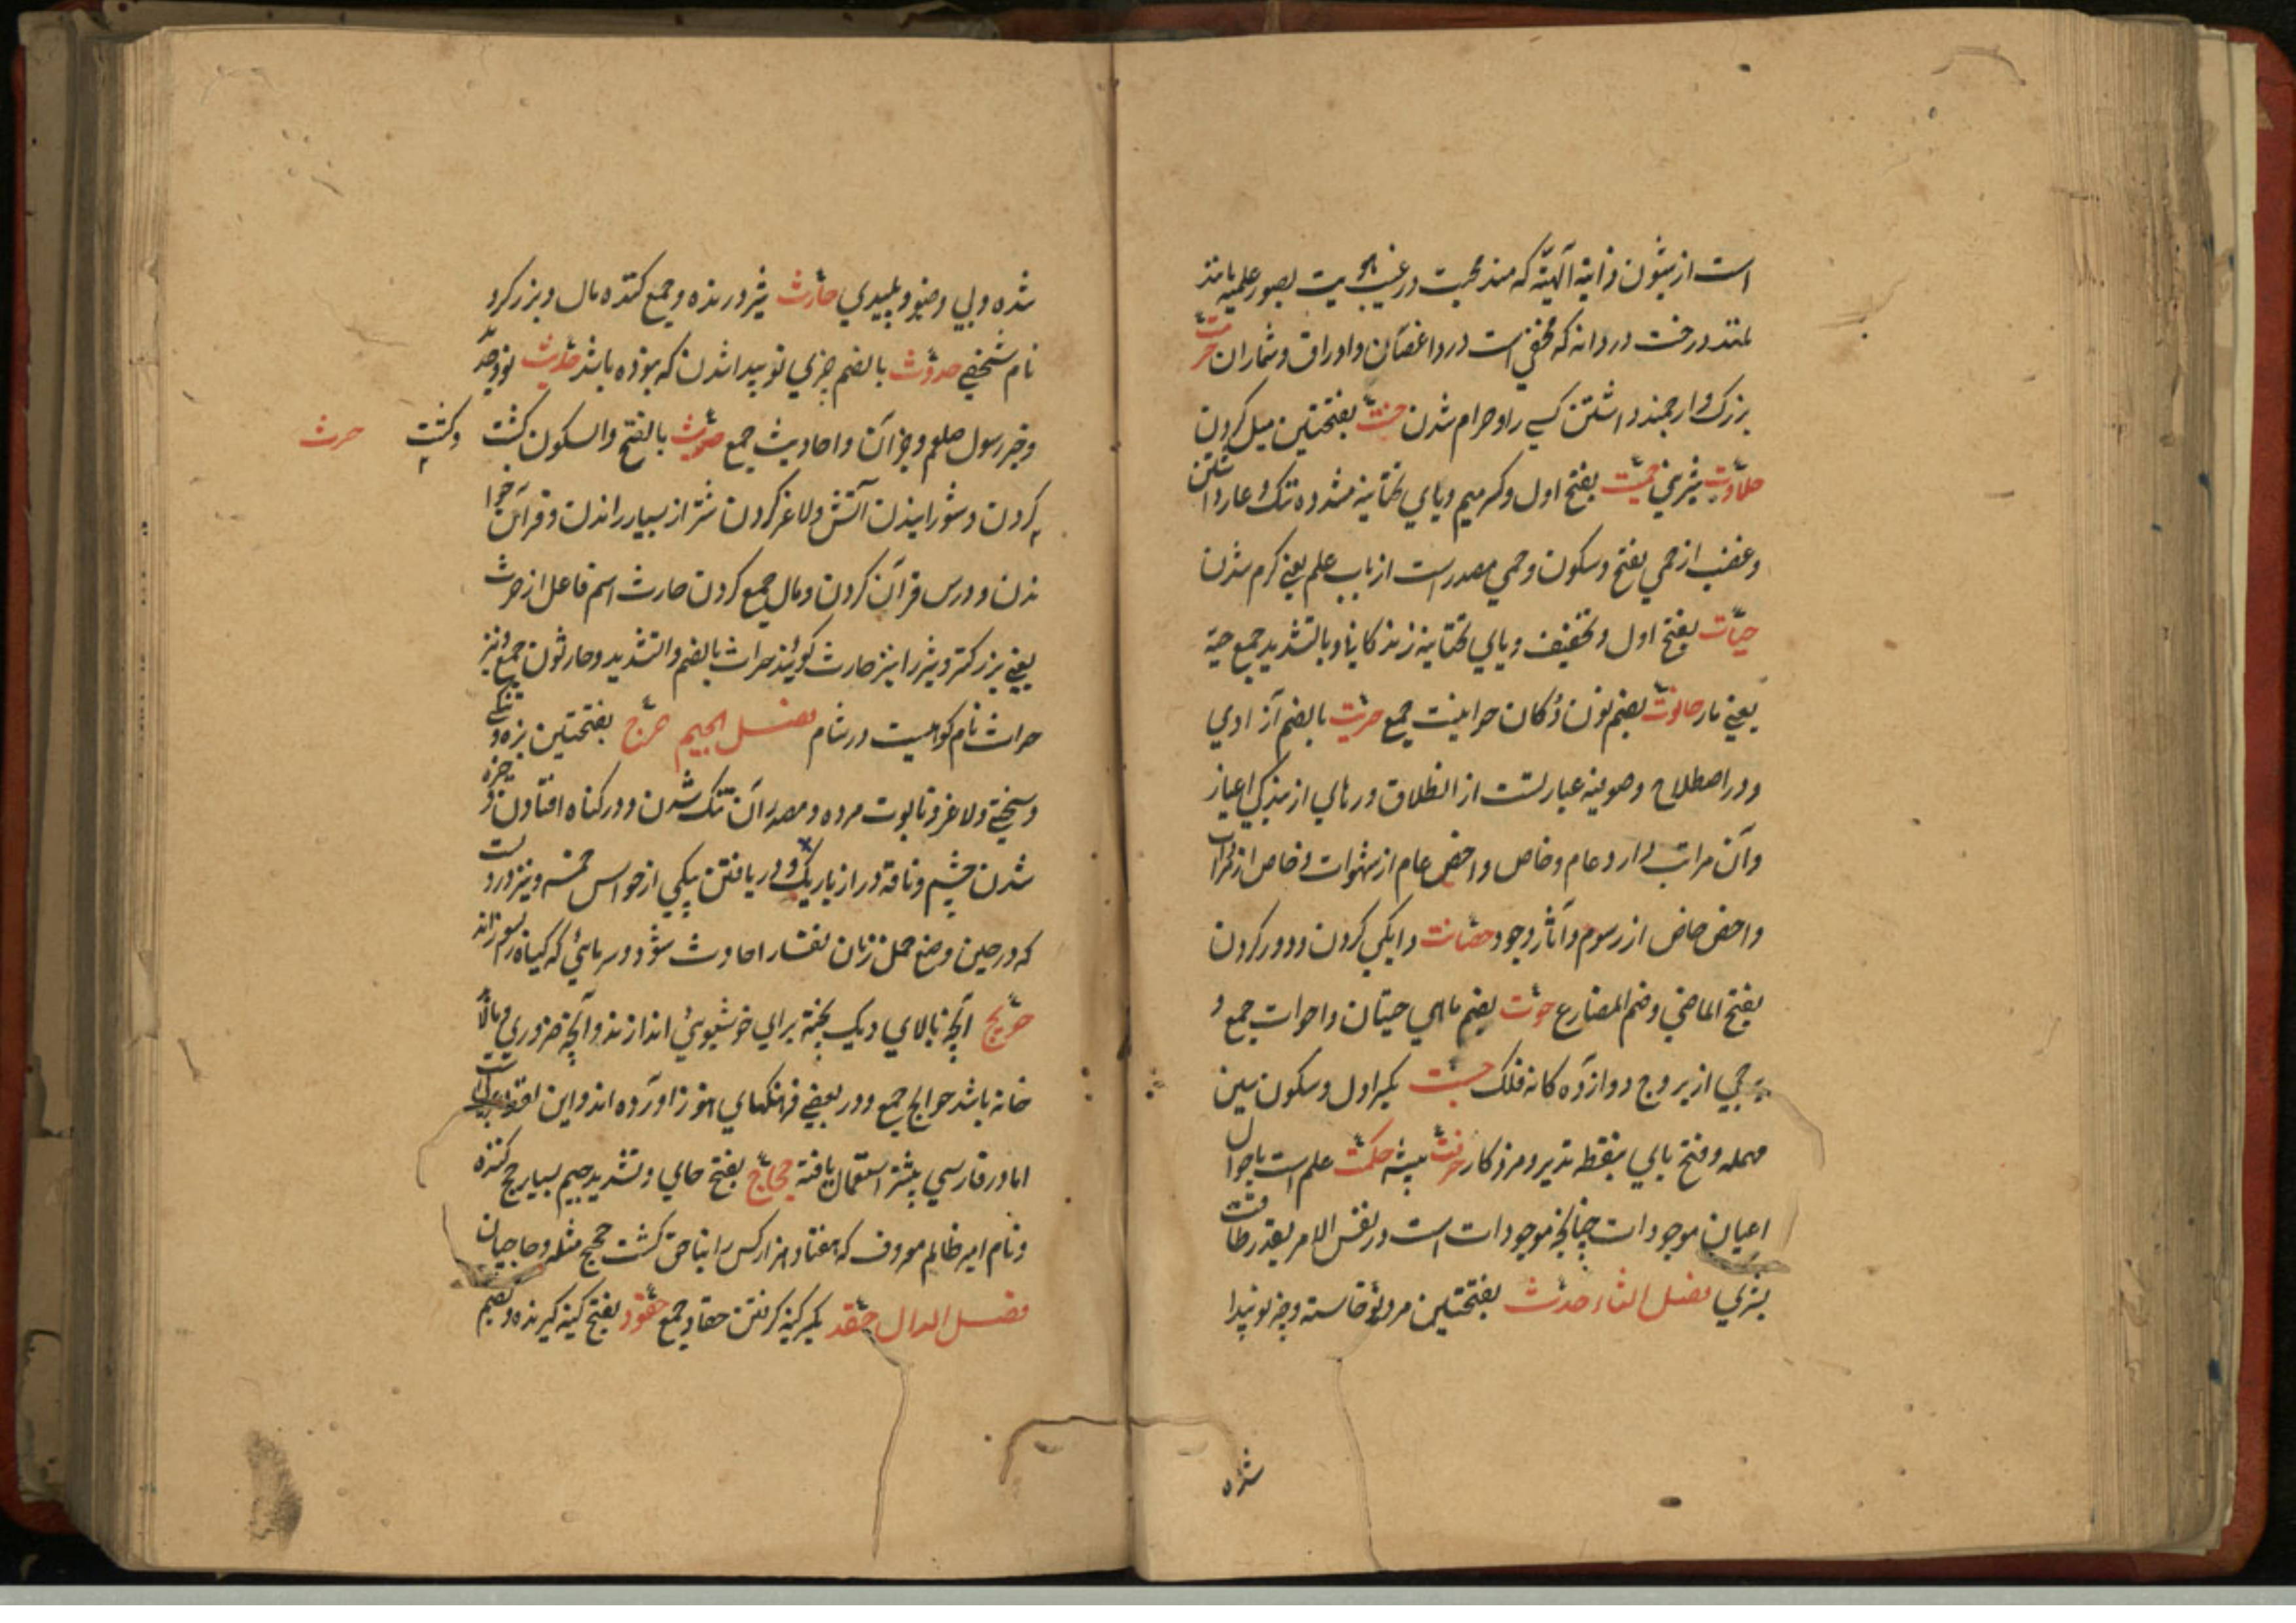 است از شئون ذاتیه آلهیّه که مندمجست در غیب هویت بصور علمیه مانند
درخت در دانه که مخفی است در و اغصان و اوراق و ثمار ان حرمت
بزرک و ارجمند داشتن کسے را و حرام شدن بفتحتین میل کردن
حلاوت شیرینی حمیّت بفتح اول و کسر میم و یای تحتانیه مشدده ننک و عار داشتن
و غضب از حمی بفتح و سکون و حمی مصدر است از باب علم یعنے کرم شدن
حیات بفتح اول و تخفیف و یای تحتانیه زندکانی و بالتشدید جمع حیة
یعنے مار حانوت بضم نون دُکان حوانیت جمع حریت بالضم آزادی
و در اصطلاح صوفیه عبارتست از انطلاق و رهایی از بندکی اغیار
و آن مراتب دارد عام و خاص و اخص عام از شهوات و خاص از مرادات
و اخص خاص از رسوم و آثار وجود حضانت دایکی کردن و دور کردن
بفتح الماضی و ضم المضارع حوت بضم ماهی حیتان و احوات جمع و
برجی از بروج دوازده کانه فلک حسبت بکسر اول و سکون سین
مهمله و فتح بای بنقطه تدبیر و مزد کار حرفت پیشه حکمت علم است باحوال
اعیان موجودات چنانچه موجودات است در نفس الامر بقدر طاقت
بشری فصل الثاء حدث بفتحتین مرد نوخاسته و چیز نو پیدا
شده
شده و بی وضو و پلیدی حارث شیر درنده و جمع کننده مال و برزکر و
نام شخصے حدوث بالضم چیزی نو پیدا شدن که نبوده باشد حدیث نو ضد
و خبر رسول صلعم و جز آن و احادیث جمع حرث بالفتح والسکون کشت و کشت حرث
کردن و شورانیدن آتش و لاغر کردن شتر از بسیار راندن و قرآن خوا
ندن و درس قرآن کردن و مال جمع کردن حارث اسم فاعل از حرث
یعنے برزکتر و شیر را نیز حارث کویند حراث بالضم والتشدید و حارثون جمع و نیز
حراث نام کوهیست در شام فصل الجیم حرج بفتحتین بزه و تنکی
و سختے و لاغر و تابوت مرده و مصدر آن تنک شدن و در کناه افتادن و خیره
شدن چشم و ناقه دراز باریک و دریافتن بیکی از حواس خمسه و نیز درد
که در حین وضع حمل زنان نفسا را حادث شود و سرمائی که کیاه را بسوزاند
حویج آنچه بالای دیک پخته برای خوشبوئی اندازند و آنچه ضروری
خانه باشد حوایج جمع و در بعضے فرهنکهای هنوز آورده اند و این لغت عربی است
اما در فارسی بیشتر استعمال یافته حجاج بفتح حای و تشدید جیم بسیار حج کننده
و نام امیر ظالم معروف که هفتاد هزار کس را بناحق کشت حجیج مثله و حاجیان
فصل الدال حقد بکسر کینه کرفتن حقاد جمع حقود بفتح کینه کیرنده و بضم